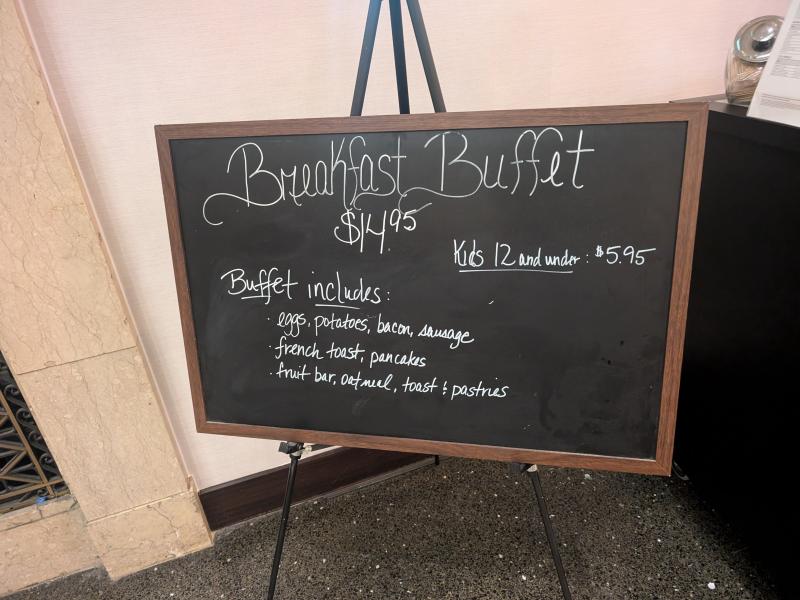 Breakfast Buffet
$14.95
Kids 12 and under: $5.95
Buffet includes:
· eggs, potatoes, bacon, sausage
· french toast, pancakes
· fruit bar, oatmeal, toast & pastries